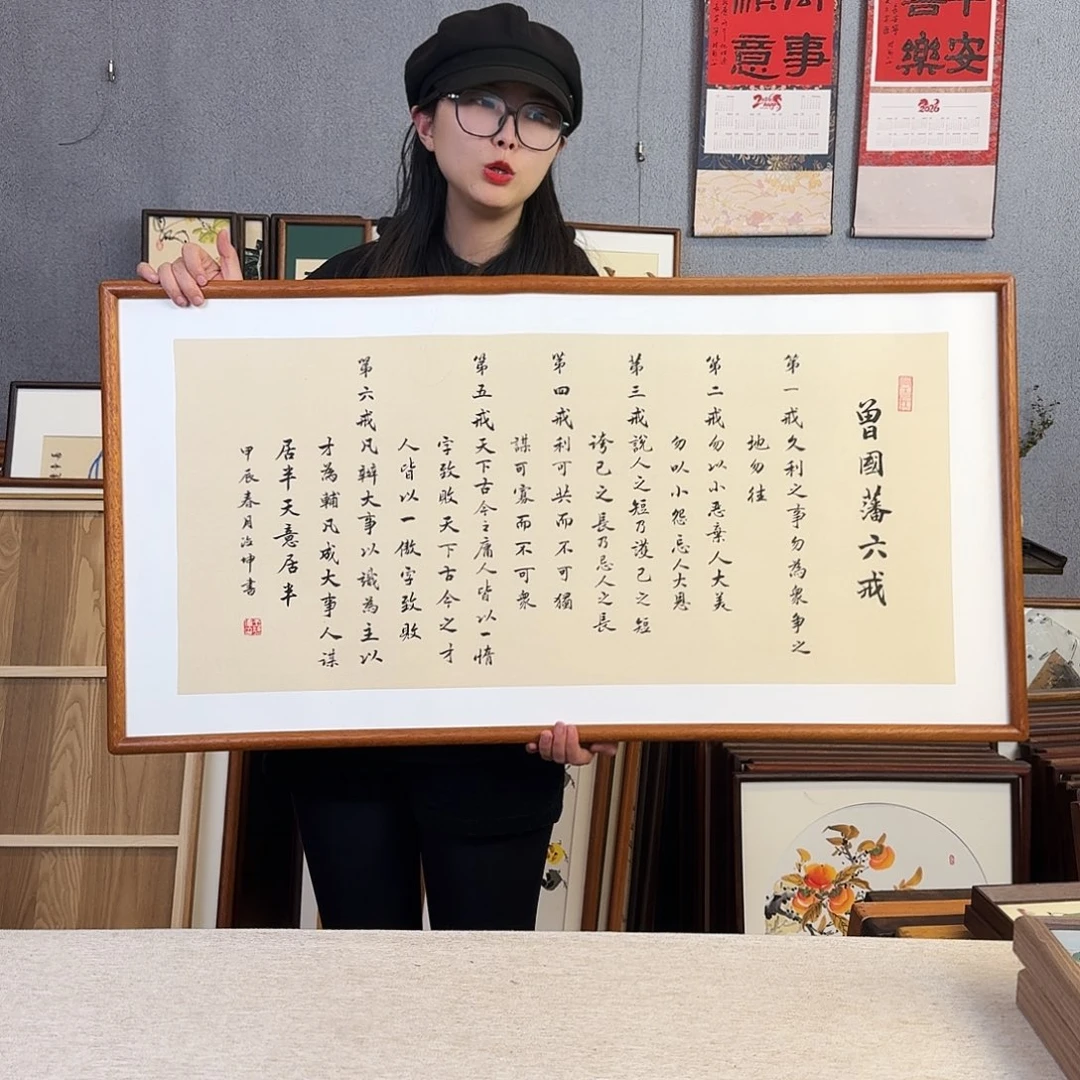 曾國藩六戒
第一戒久利之事勿為衆争之
地勿往
第二戒勿以小惡棄人大美
勿以小怨忘人大恩
第三戒說人之短乃護己之短
誇己之長乃忌人之長
第四戒利可共而不可獨
謀可寡而不可衆
第五戒天下古今之庸人皆以一惰
字致敗天下古今之才
人皆以一傲字致敗
第六戒凡辦大事以識為主以
才為輔凡成大事人謀
居半天意居半
甲辰春月治坤書
平安
喜樂
2026
萬事
順意